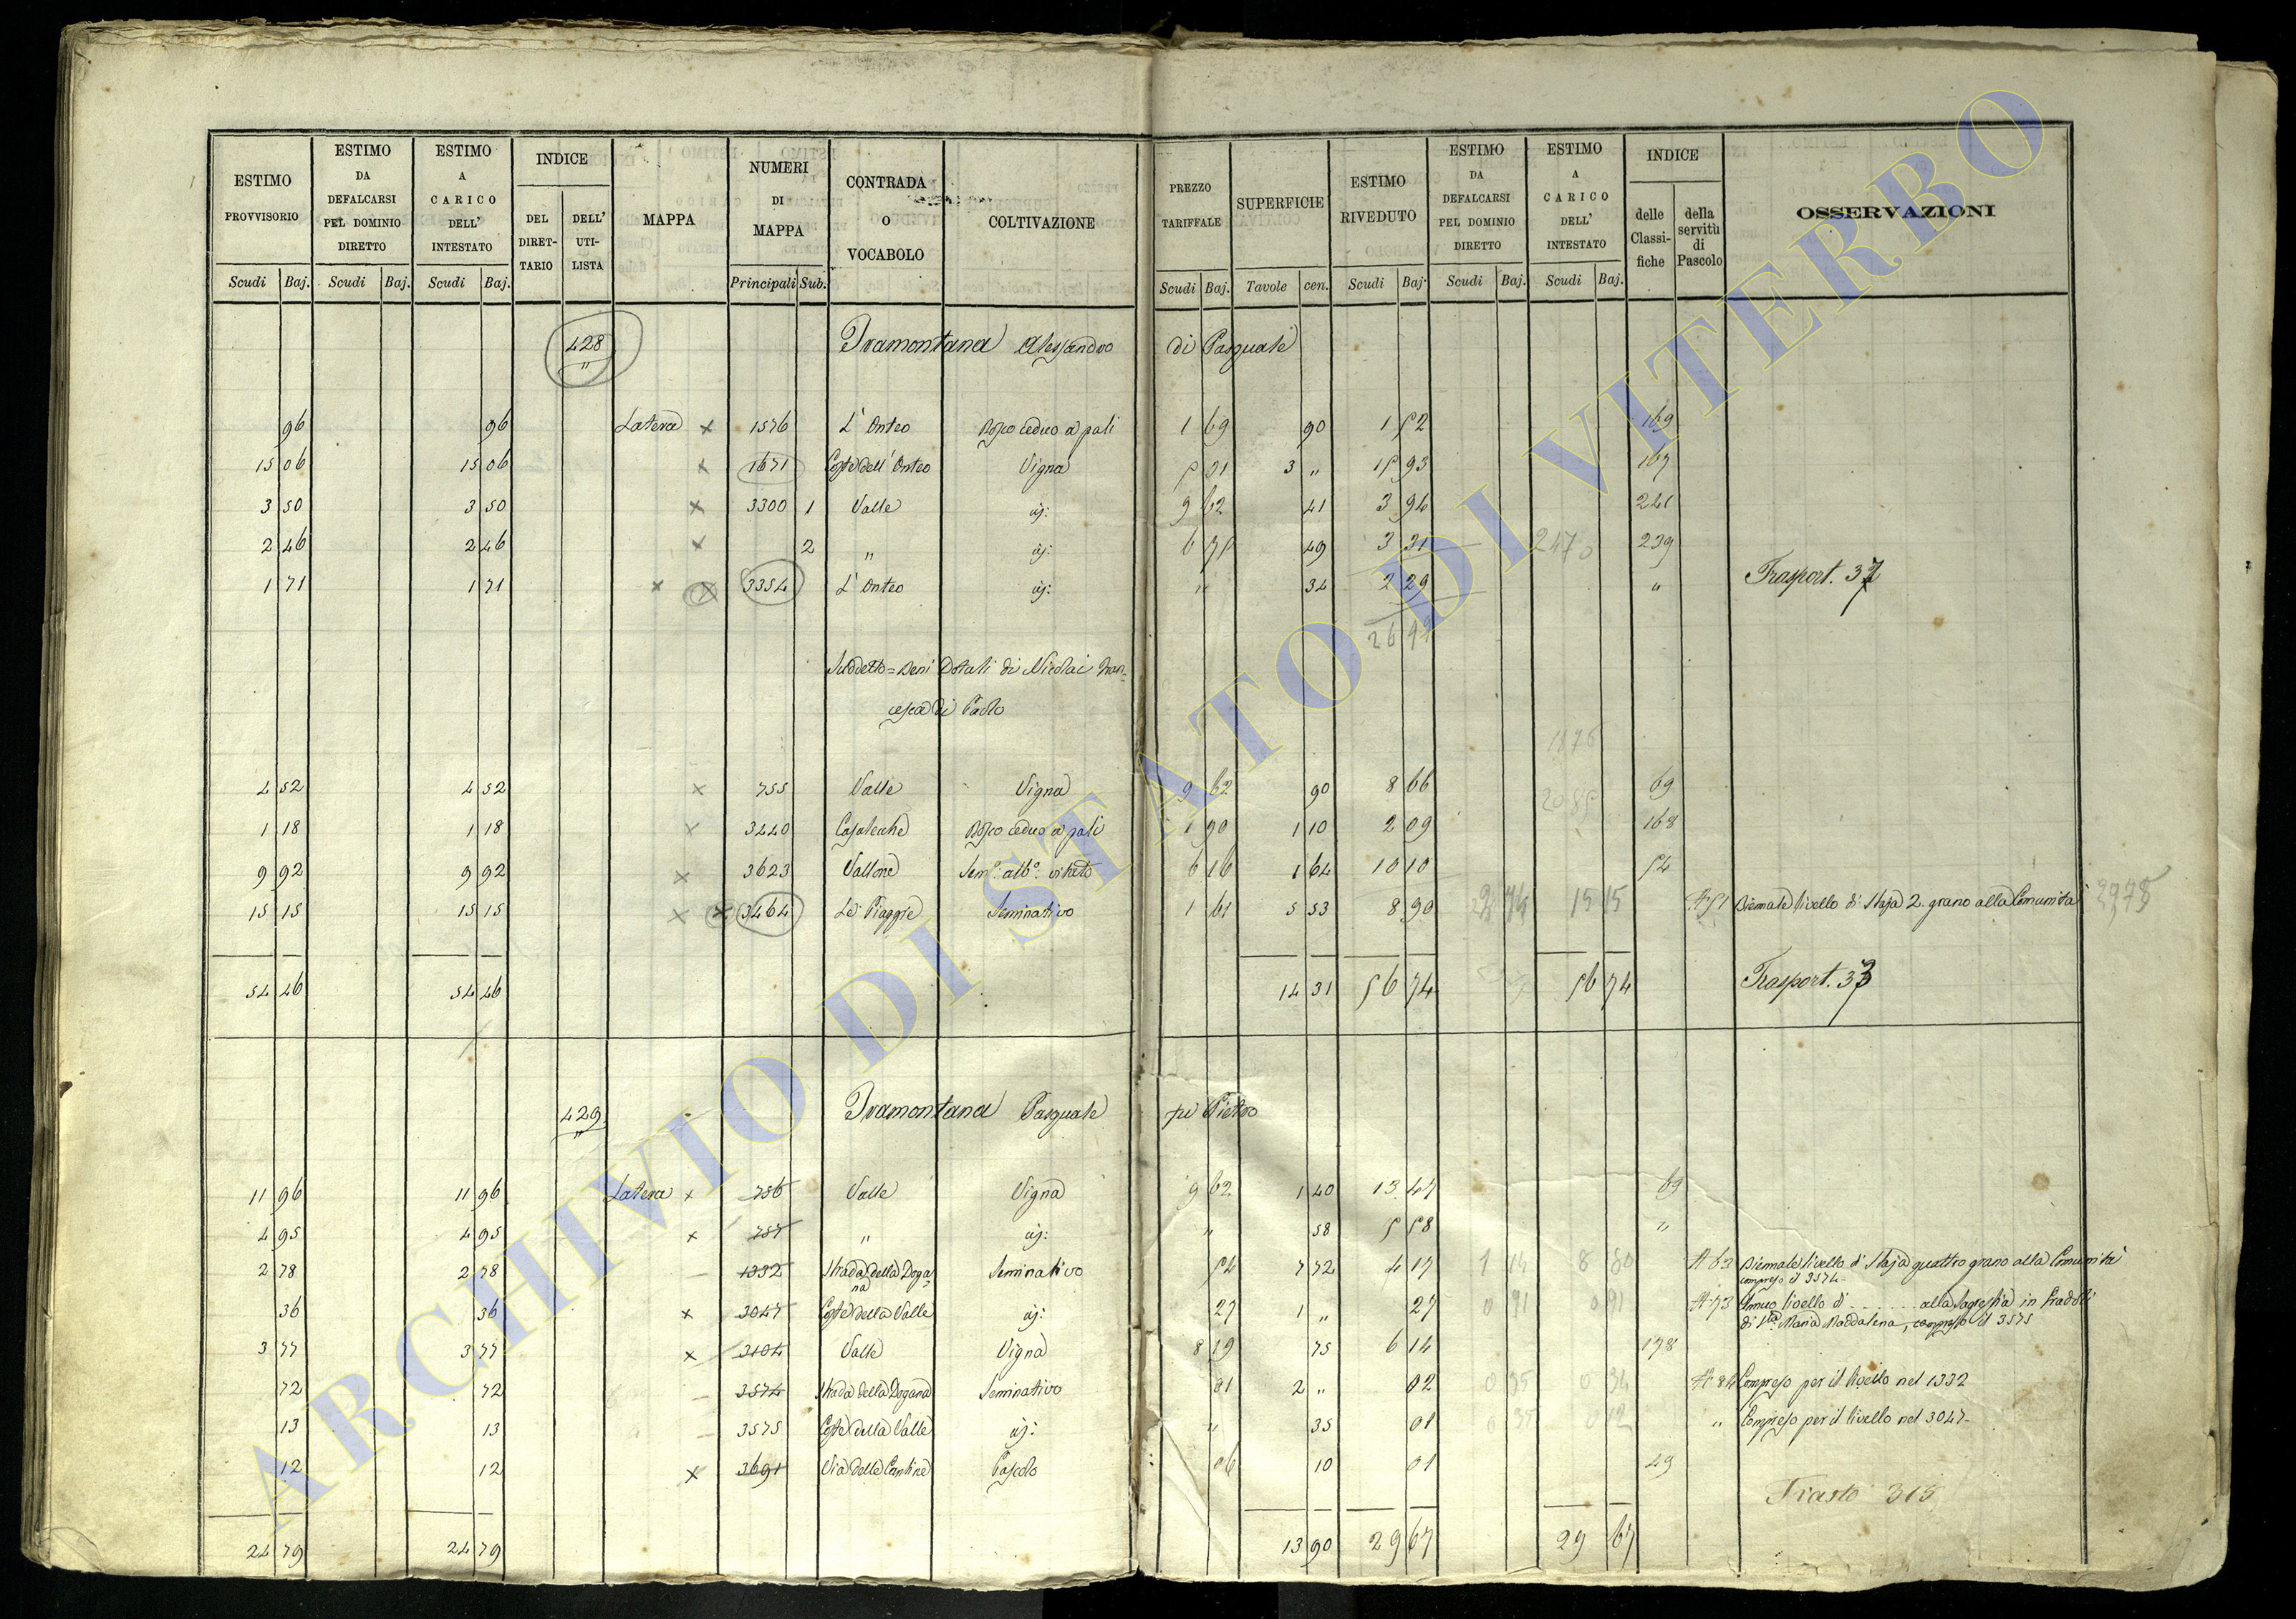 ESTIMO PROVVISORIO | ESTIMO DA DEFALCARSI PEL DOMINIO DIRETTO | ESTIMO A CARICO DELL' INTESTATO | INDICE | MAPPA | NUMERI DI MAPPA | CONTRADA O VOCABOLO | COLTIVAZIONE | PREZZO TARIFFALE | SUPERFICIE | ESTIMO RIVEDUTO | ESTIMO DA DEFALCARSI PEL DOMINIO DIRETTO | ESTIMO A CARICO DELL' INTESTATO | INDICE | OSSERVAZIONI
DEL DIRETTARIO | DELL' UTILISTA | delle Classifiche | della servitù di Pascolo
Scudi Baj. | Scudi Baj. | Scudi Baj. | Principali Sub. | Scudi Baj. | Tavole cen. | Scudi Baj. | Scudi Baj. | Scudi Baj.
428 " Tramontana Alessandro di Pasquale
96 | 96 | Latera x | 1576 | L' Onteo | Bosco ceduo a pali | 1 69 | 90 | 1 52 | 169
15 06 | 15 06 | x | 1671 | Coste dell' Onteo | Vigna | 5 31 | 3 " | 15 93 | 167
3 50 | 3 50 | x | 3300 1 | Valle | id: | 9 62 | 41 | 3 94 | 241
2 46 | 2 46 | x | 2 | " | id: | 6 75 | 49 | 3 31 | 2470 | 239
1 71 | 1 71 | x x | 3354 | L' Onteo | id: | " | 34 | 2 29 | " | Trasport. 37
26 99
Suddetto = Beni Dotali di Nicolai Fran-
cesca di Paolo
1876
4 52 | 4 52 | x | 755 | Valle | Vigna | 9 62 | 90 | 8 66 | 69
1 18 | 1 18 | x | 3440 | Casalecche | Bosco ceduo a pali | 1 90 | 1 10 | 2 09 | 168
9 92 | 9 92 | x | 3623 | Vallone | Sem.° alb.° vitato | 6 16 | 1 64 | 10 10 | 54
15 15 | 15 15 | x x | 3464 | Le Piaggie | Seminativo | 1 61 | 5 53 | 8 90 | 15 15 | A 51 | Biennale livello di Staja 2. grano alla Comunità
54 46 | 54 46 | 14 31 | 56 74 | 56 74 | Trasport. 33
429 " Tramontana Pasquale fu Pietro
11 96 | 11 96 | Latera x | 756 | Valle | Vigna | 9 62 | 1 40 | 13 47 | 69
4 95 | 4 95 | x | 757 | " | id: | " | 58 | 5 58 | "
2 78 | 2 78 | 1332 | Strada della Dogana | Seminativo | 54 | 7 72 | 4 17 | 1 14 | 8 80 | A 62 | Biennale livello di Staja quattro grano alla Comunità
compreso il 3574
36 | 36 | x | 3047 | Coste della Valle | id: | 27 | 1 " | 27 | 0 91 | 0 91 | A 73 | Annuo livello di ....... alla Sagrestia in Gradoli
di S.ta Maria Maddalena, compreso il 3575
3 77 | 3 77 | x | 3104 | Valle | Vigna | 8 19 | 75 | 6 14 | 178
72 | 72 | 3574 | Strada della Dogana | Seminativo | 01 | 2 " | 02 | A 84 | Compreso per il livello nel 1332
13 | 13 | 3575 | Coste della Valle | id: | " | 35 | 01 | " | Compreso per il livello nel 3047
12 | 12 | x | 3691 | Via delle Cantine | Pascolo | 06 | 10 | 01 | 49
24 79 | 24 79 | 13 90 | 29 67 | 29 67
ARCHIVIO DI STATO DI VITERBO